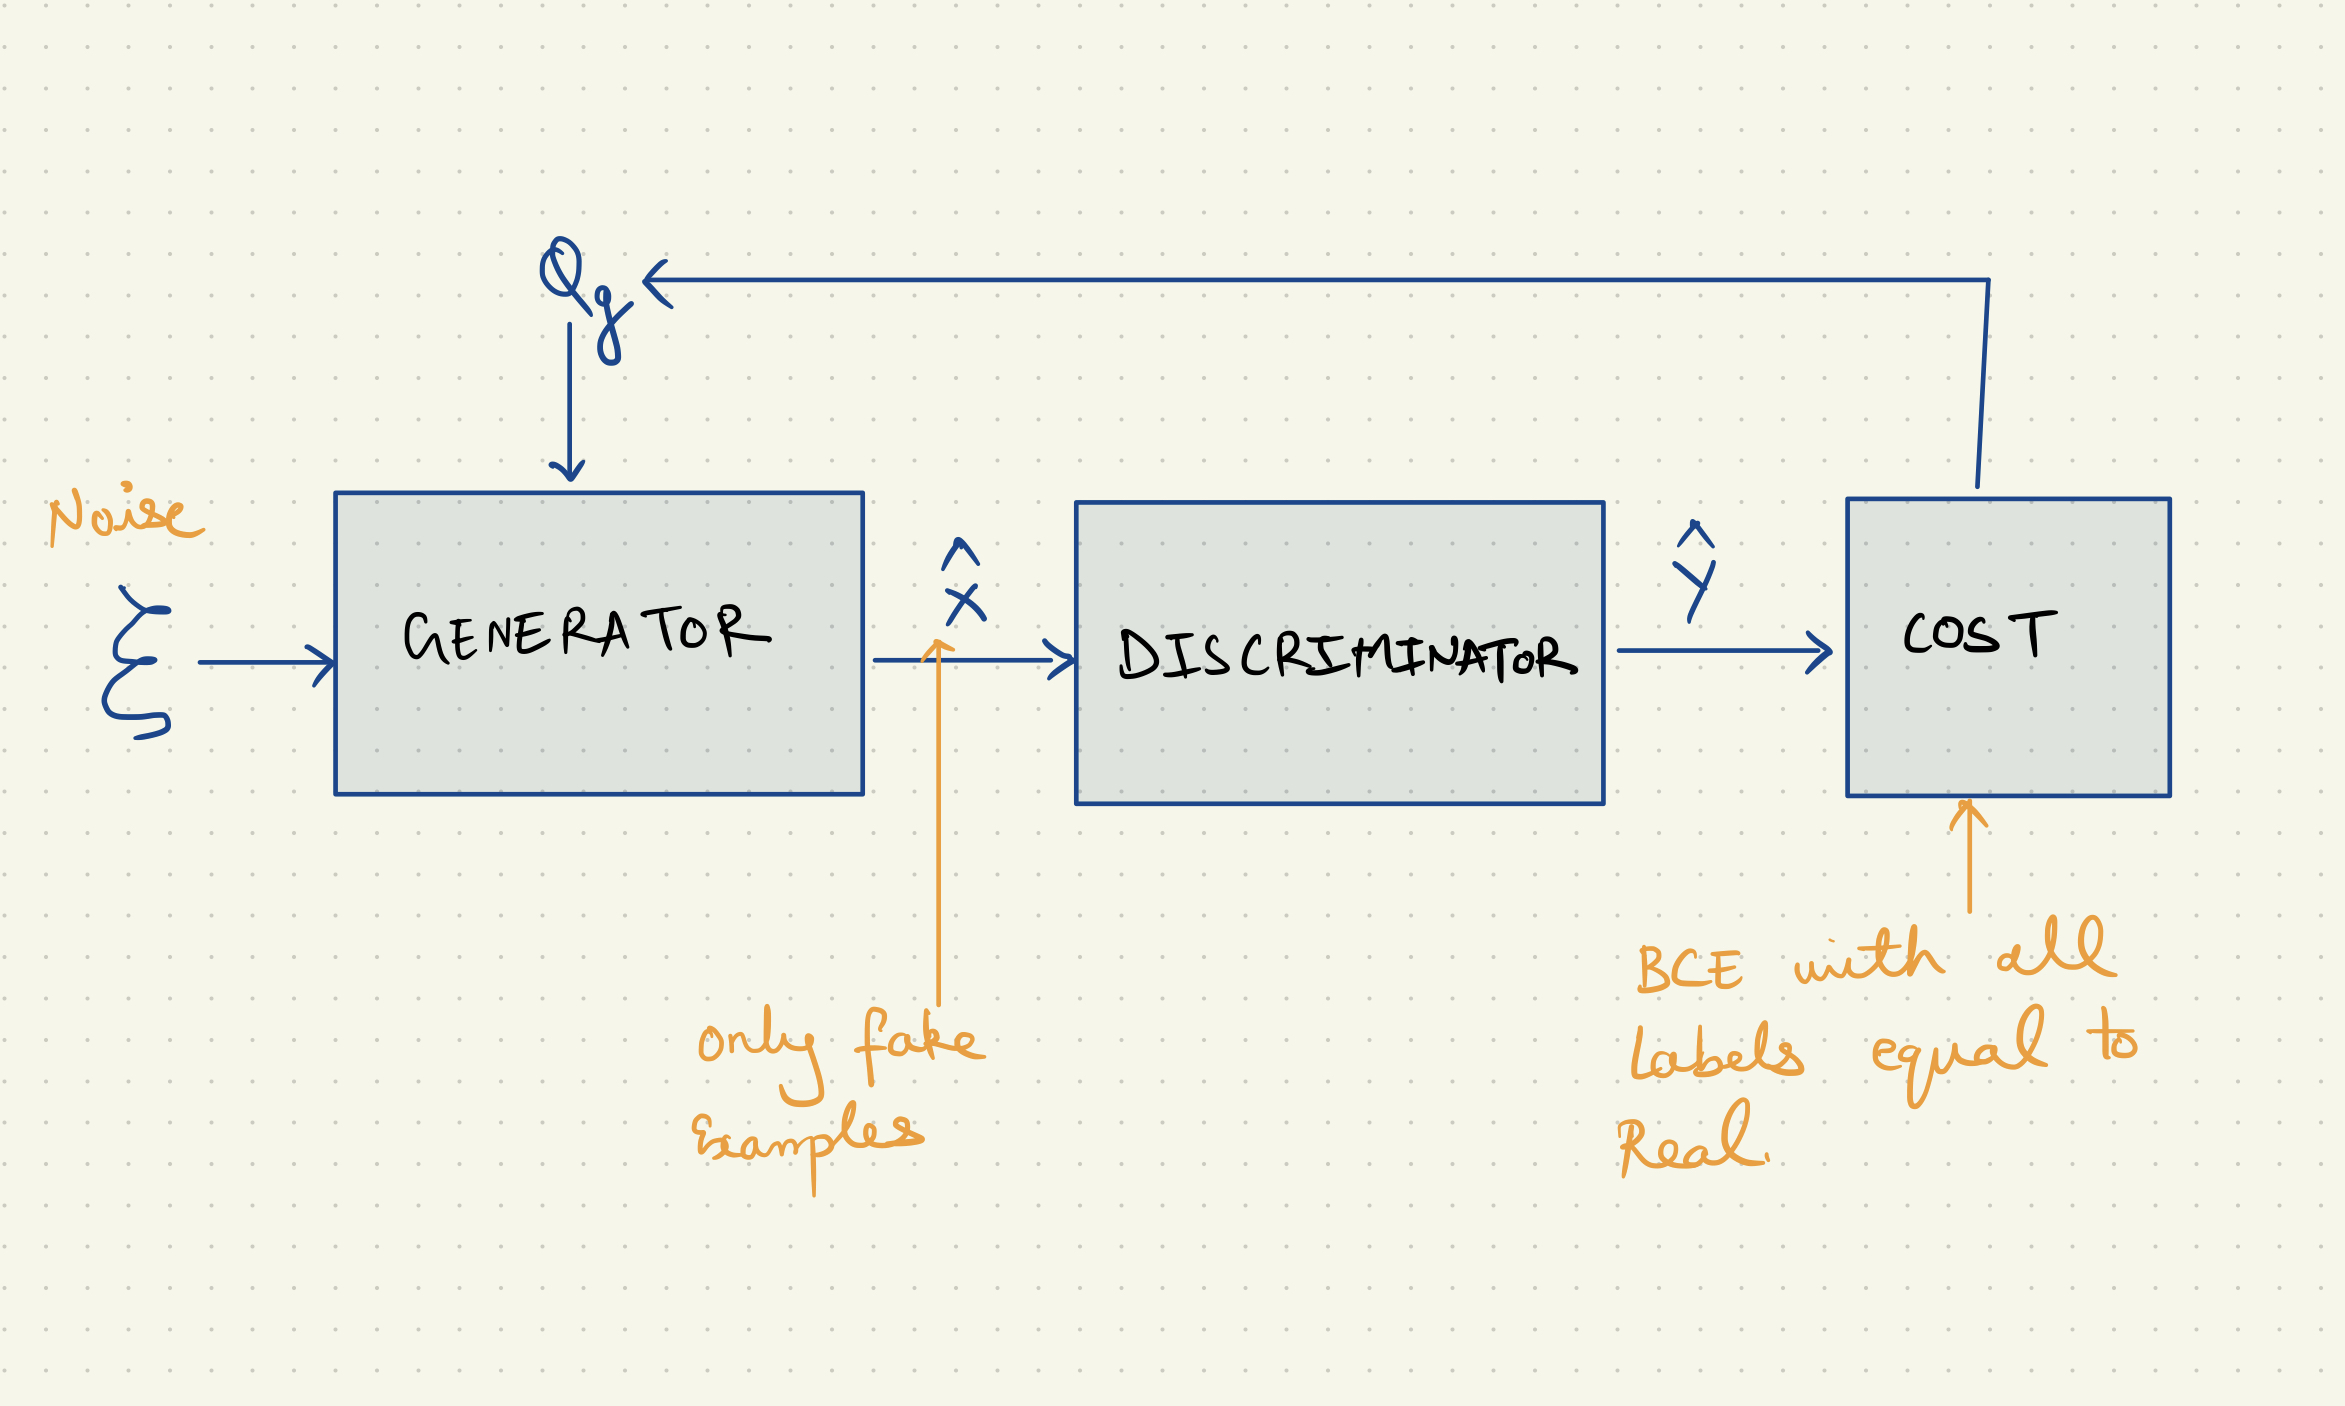 Qg
Noise
ξ
GENERATOR
X̂
DISCRIMINATOR
Ŷ
COST
only fake
Examples
BCE with all
Labels equal to
Real.